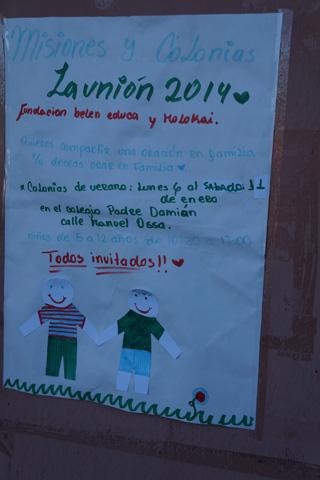 Misiones y Colonias
La unión 2014
Fundacion belen educa y Molokai.
Quieres compartir una oración en familia
y/o deseas orar en familia
* Colonias de verano: Lunes 6 al Sábado 11
de enero
en el colegio Padre Damián
calle Manuel Ossa.
niños de 5 a 12 años de 10:30 a 17:00
Todos invitados!!